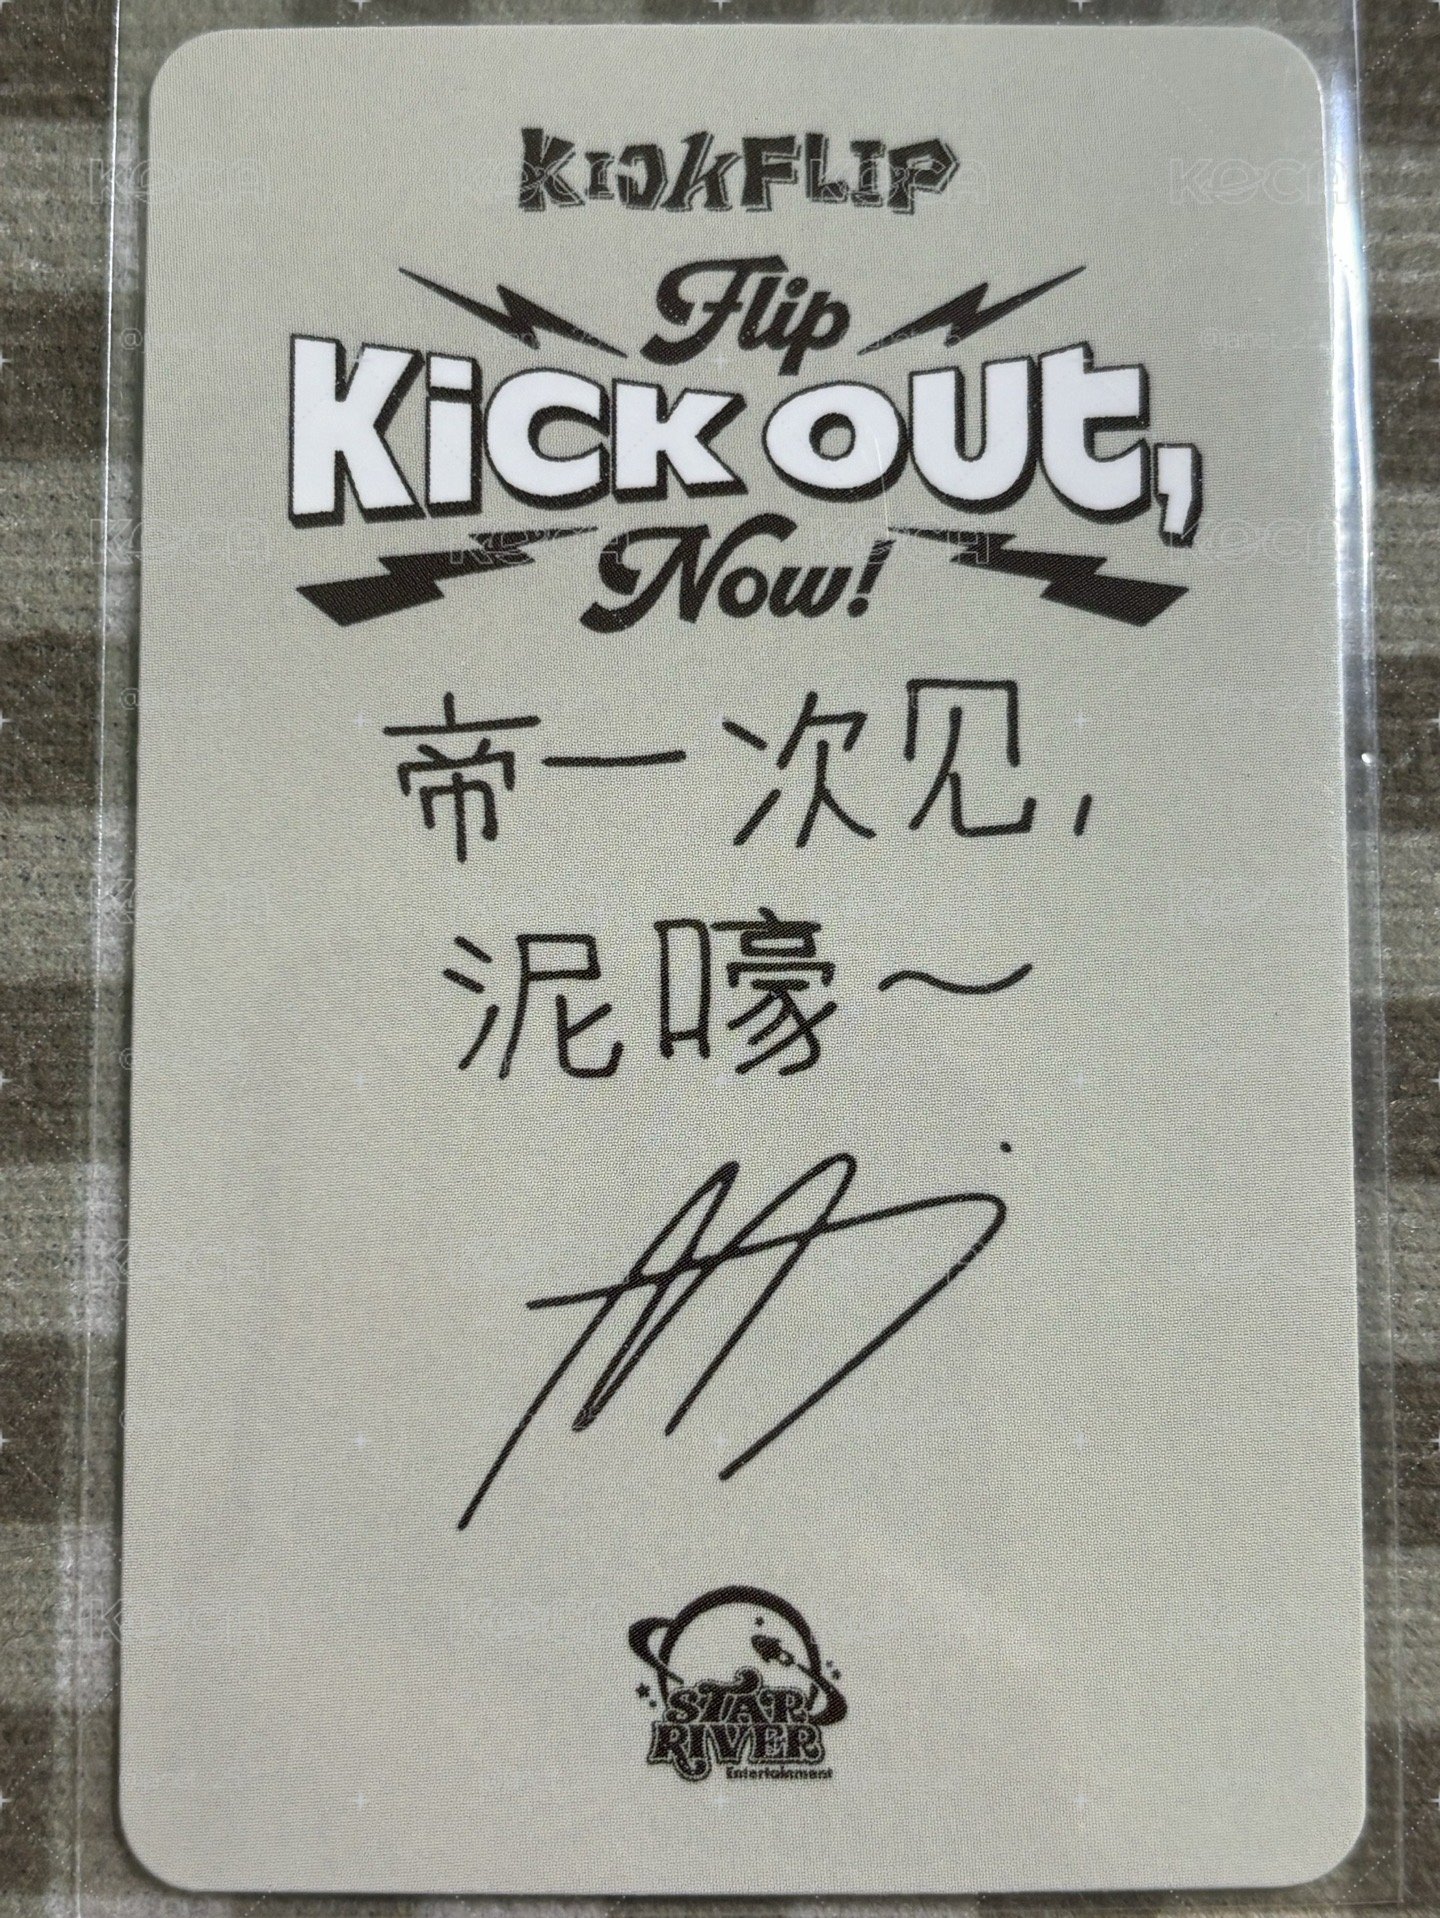 KickFLIP
Flip
Kick out,
Now!
帝一次见,
泥嚎~
STAR
RIVER
Entertainment